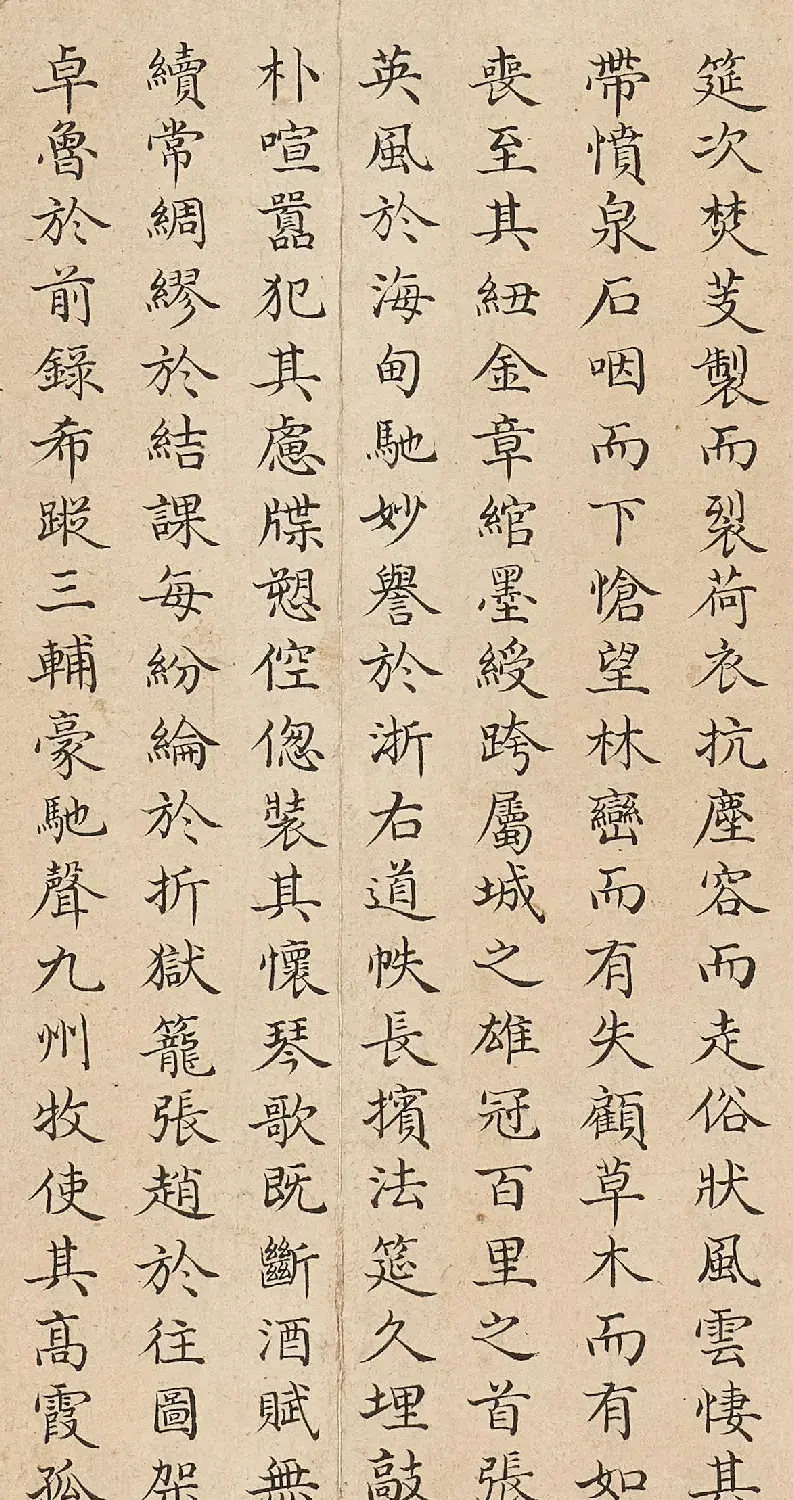 筵次焚芰製而裂荷衣抗塵容而走俗狀風雲悽其
帶憤泉石咽而下愴望林巒而有失顧草木而有如
喪至其紐金章綰墨綬跨屬城之雄冠百里之首張
英風於海甸馳妙譽於浙右道帙長擯法筵久埋敲
朴喧囂犯其慮牒愬倥傯裝其懷琴歌既斷酒賦無
續常綢繆於結課每紛綸於折獄籠張趙於往圖架
卓魯於前錄希蹤三輔豪馳聲九州牧使其高霞孤